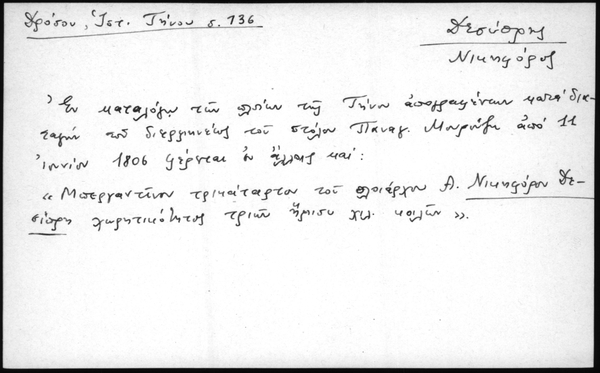 Δρόσου, Ἱστ. Τήνου σ. 136
Δεσύπρης
Νικηφόρος
Ἐν καταλόγῳ τῶν πλοίων τῆς Τήνου ἀπογραφέντων κατὰ δια-
ταγὴν τοῦ διερμηνέως τοῦ στόλου Παναγ. Μουρούζη ἀπὸ 11
Ἰουνίου 1806 φέρεται ἐν ἄλλοις καὶ:
« Μπεργαντῖνον τρικάταρτον τοῦ πλοιάρχου Α. Νικηφόρου Δε-
σύπρη χωρητικότητος τριῶν ἥμισυ χιλ. κοιλῶν ».